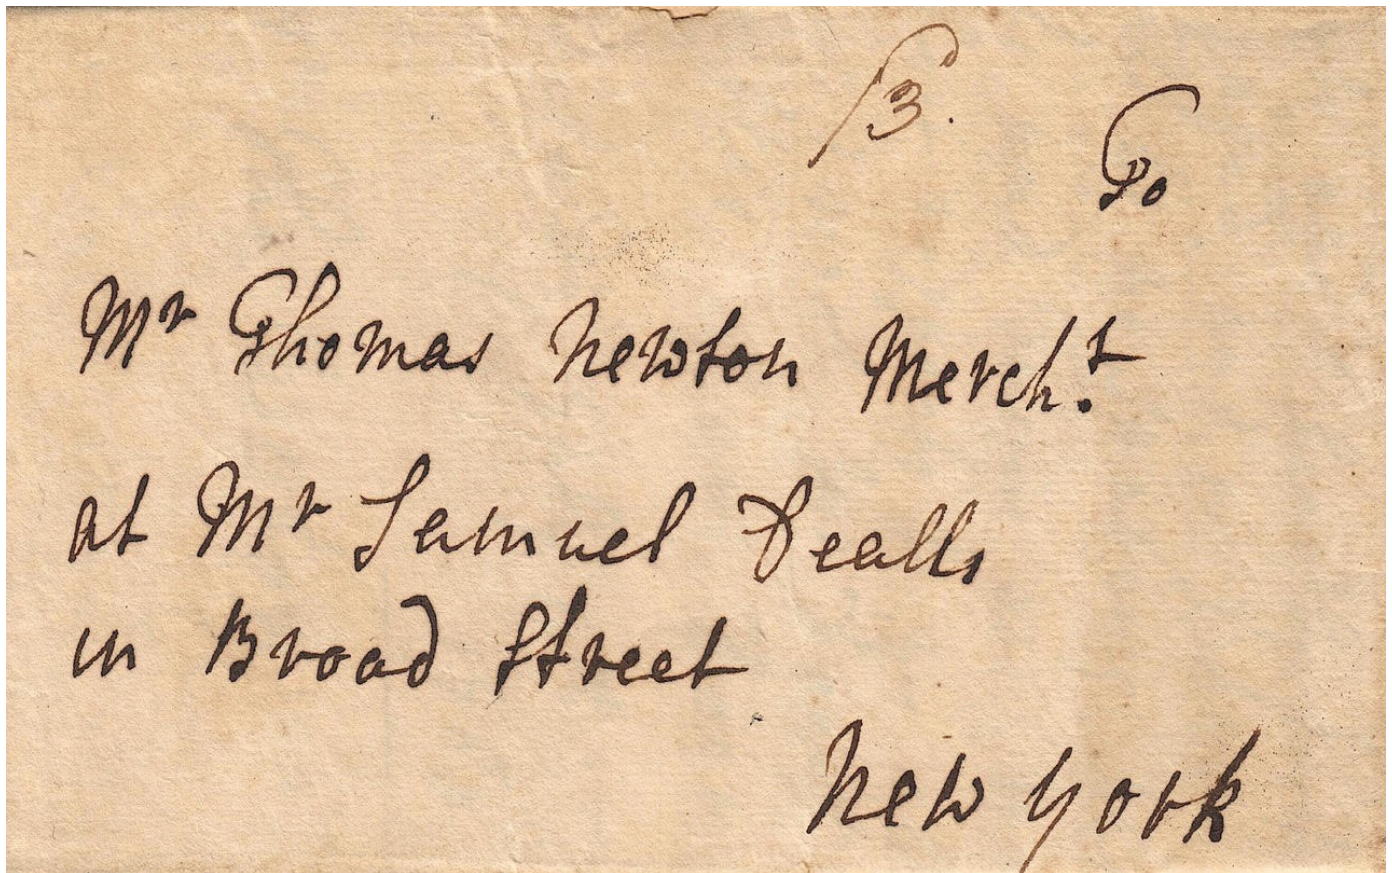 3.
To
Mr Thomas Newton Mercht.
at Mr Samuel Dealls
in Broad Street
New York